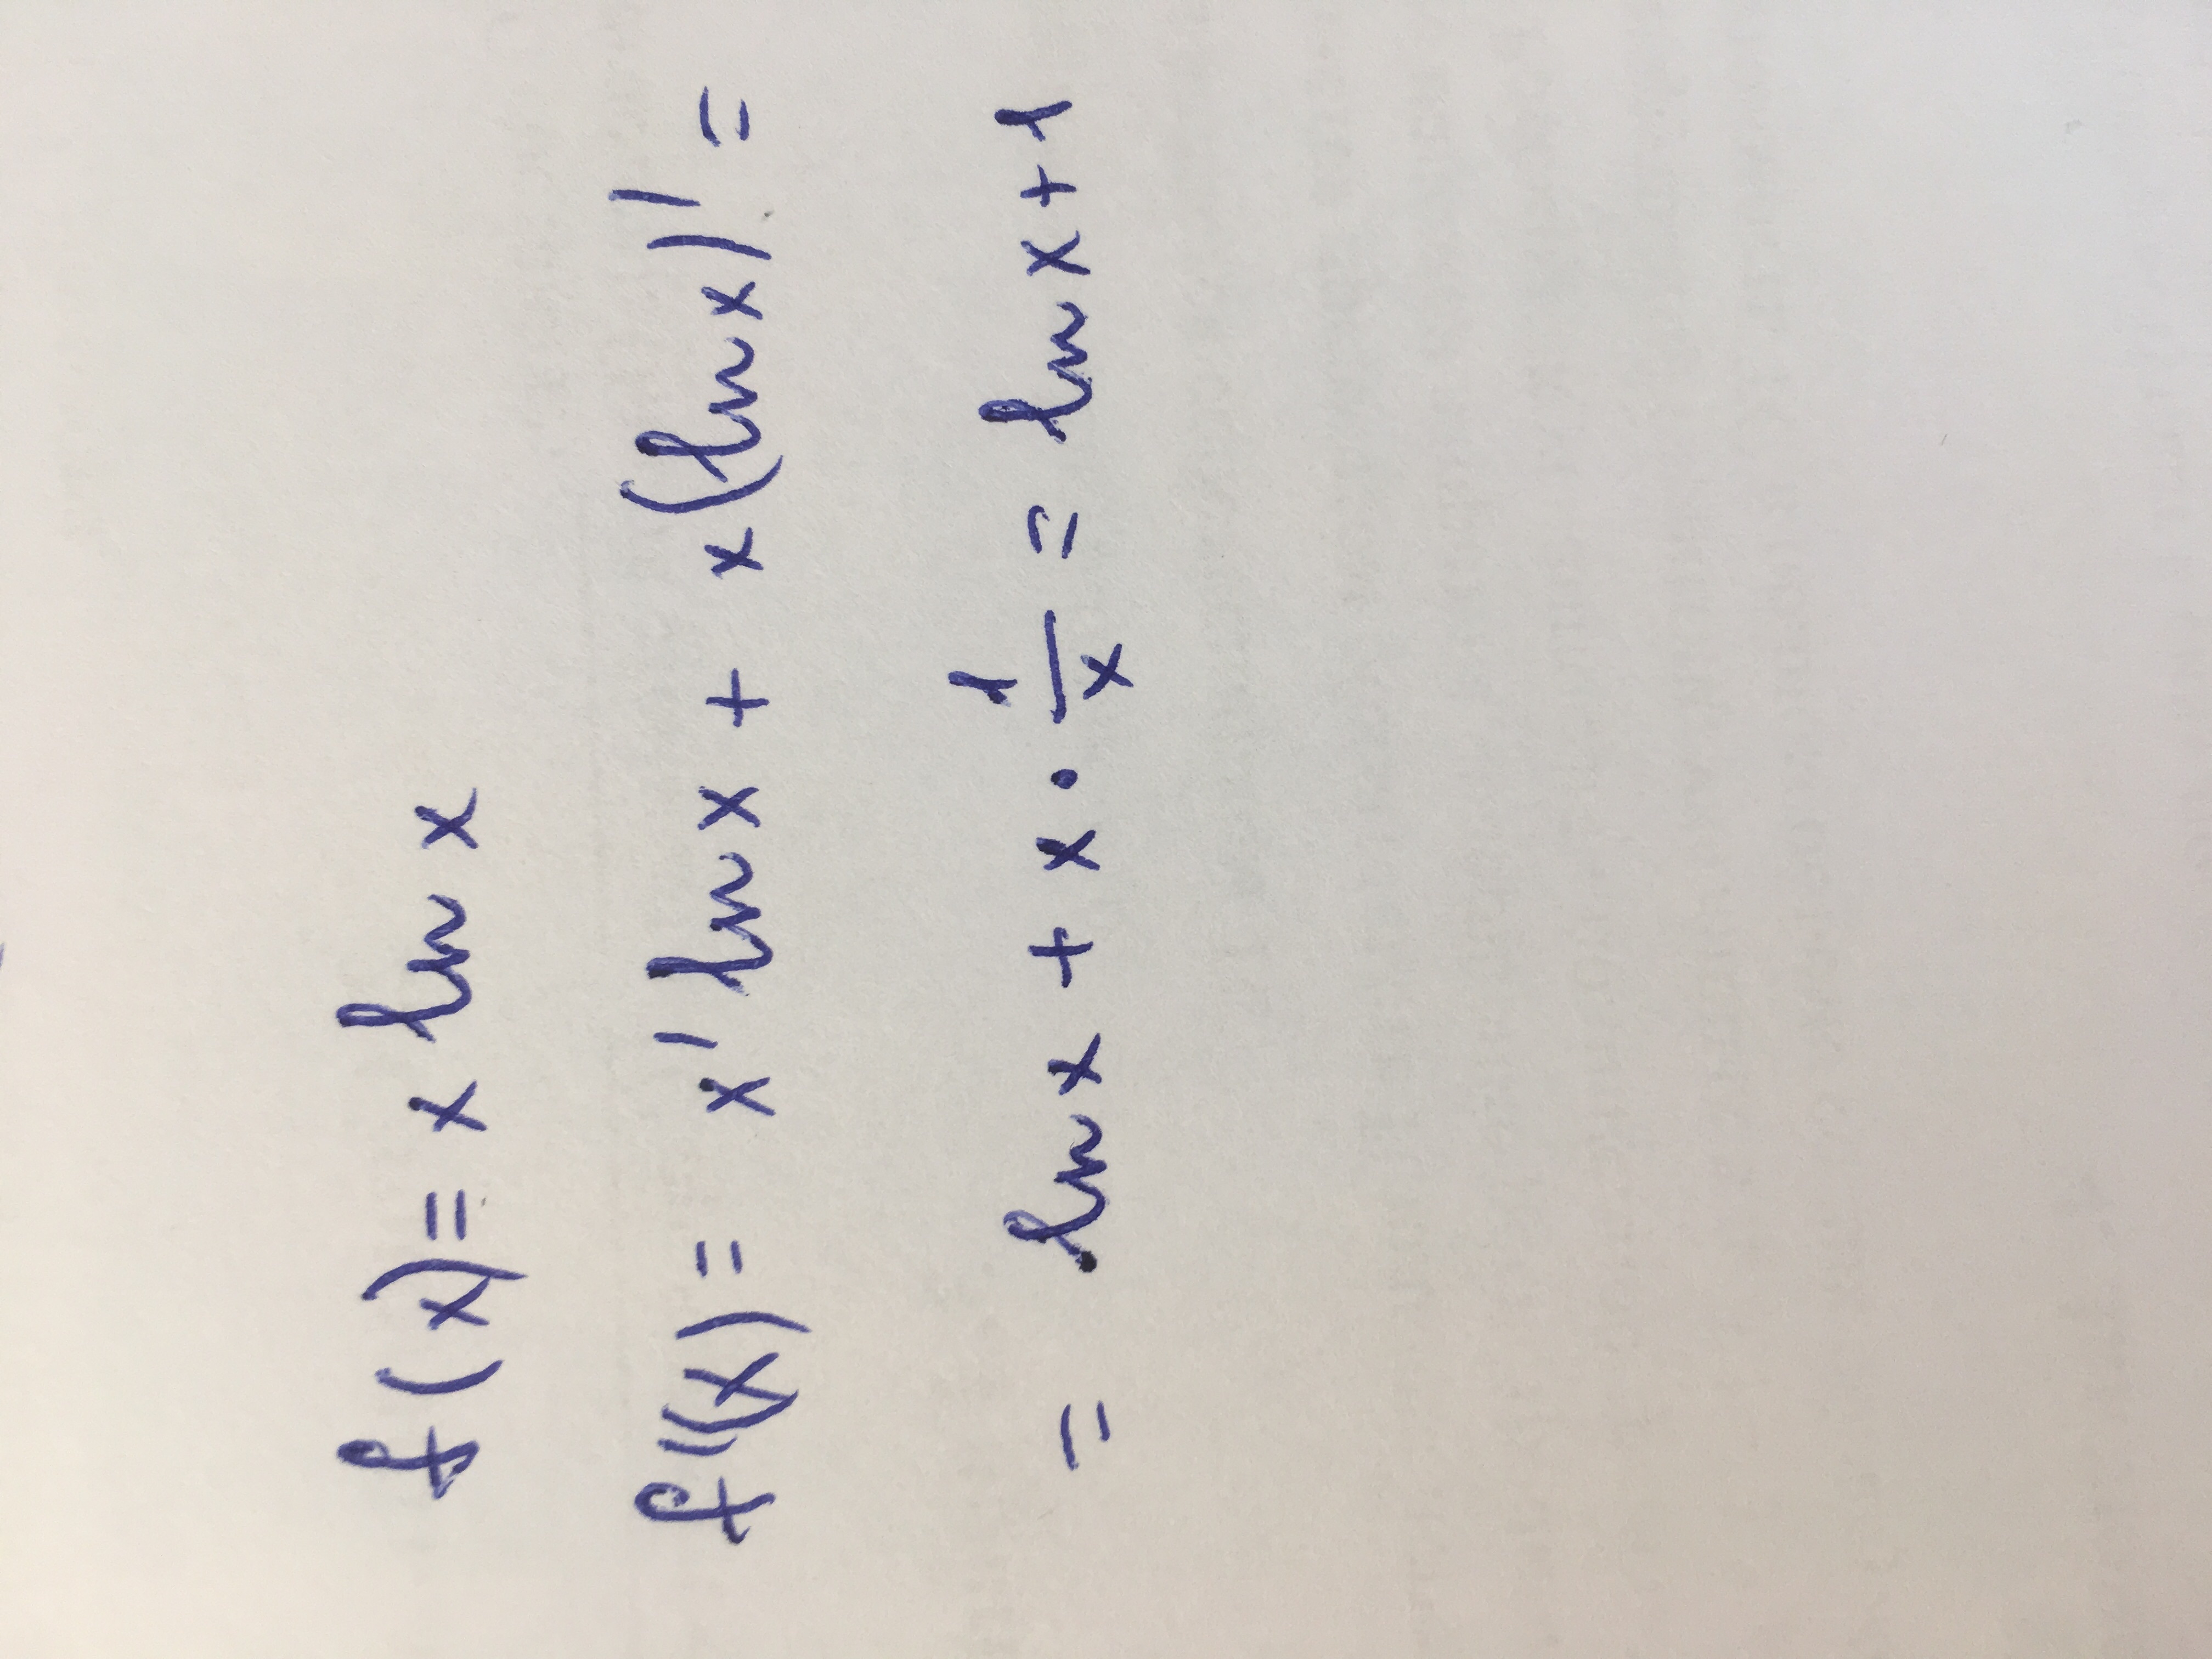 f(x) = x ln x
f'(x) = x' ln x + x(ln x)' =
= ln x + x · 1/x = ln x + 1